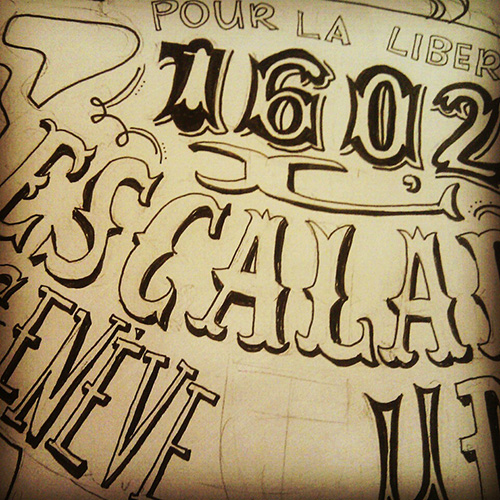 POUR LA LIBER
1602
ESCALA
GENÈVE